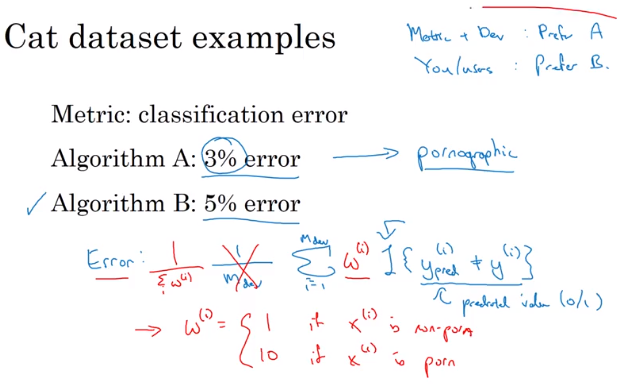 Cat dataset examples
Metric + Dev : Prefer A
You/users : Prefer B.
Metric: classification error
Algorithm A: 3% error → pornographic
✓ Algorithm B: 5% error
Error: 1/Σᵢ w⁽ⁱ⁾ 1/m_dev Σᵢ₌₁^{m_dev} w⁽ⁱ⁾ 1{y_pred⁽ⁱ⁾ ≠ y⁽ⁱ⁾}
predicted value (0/1)
→ w⁽ⁱ⁾ = { 1 if x⁽ⁱ⁾ is non-porn
10 if x⁽ⁱ⁾ is porn